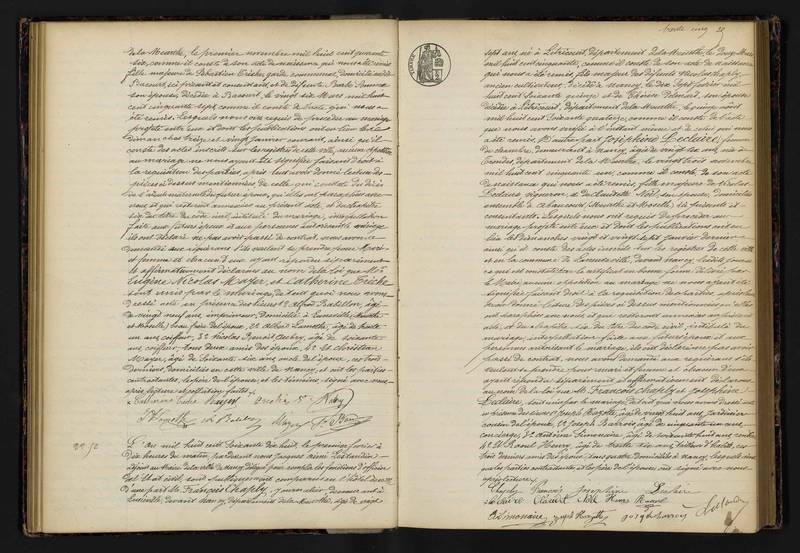 de la Meurthe, le premier novembre mil huit cent quarante
six, comme il conste de son acte de naissance qui nous a été remis
fille majeure de Sébastien Criche, garde communal, domicilié au dit
son épouse, décédée à Benaveit, le vingt six Mars mil huit
cent cinquante sept comme il conste de l'acte, qui nous a
été remis. Lesquels nous ont requis de procéder au mariage
projeté entre eux et dont les publications ont eu lieu les
dimanches treize et vingt janvier courant, ainsi qu'il
conste des actes inscrits sur les registres de cette ville, aucune opposition
au mariage ne nous ayant été signifiée faisant droit à
la réquisition des parties, après leur avoir donné lecture des
pièces ci dessus mentionnées
nous et qui resteront annexées au présent acte, et du chapitre
six du titre du code civil intitulé du mariage, interpellation
faite aux futurs époux et aux personnes autorisant le mariage
ils ont déclaré ne pas avoir passé de contrat, nous avons
demandé aux requérants s'ils veulent se prendre pour mari
et femme et chacun d'eux ayant répondu séparément
et affirmativement déclarons au nom de la loi que Mr
Eugène Nicolas Mayer, et Catherine Criche
sont unis par le mariage, de tout quoi nous avons
dressé acte en présence des sieurs 1° Alfred Batillon, âgé
de vingt neuf ans, imprimeur, domicilié à Lunéville, Meurthe
et Moselle, beau frère de l'époux, 2° Albert Lamothe, âgé de trente
un ans coiffeur, 3° Nicolas Benoit Aubry, âgé de soixante
ans, coiffeur, tous deux amis des époux, 4° et Christian
Mayer, âgé de soixante six ans, oncle de l'époux, ces trois
derniers, domiciliés en cette ville de Nancy, et ont les parties
contractantes, le père de l'épouse, et les témoins, signé avec nous
après lecture et
Catherine Criche Mayer Criche
Mayer
N° 52
L'an mil huit cent soixante dix huit, le premier février à
dix heures du matin, par devant nous Jacques
adjoint au Maire de la ville de Nancy délégué pour remplir les fonctions d'officier
de l'état civil, sont publiquement comparus en l'hôtel de ville
d'une part Mr François Chapby, journalier, demeurant à
Laneuville, devant Nancy, département de la Meurthe, âgé de vingt
trente cinq 35
sept ans, né à Létricourt, département de la Meurthe, le douze Mars
mil huit cent cinquante, comme il conste de son acte de naissance
qui nous a été remis, fils majeur des défunts Nicolas Chapby,
ancien cultivateur, décédé à Nancy, le dix sept juillet mil
huit cent soixante quinze et de son épouse
décédée à Létricourt, département de la Meurthe, le quinze août
mil huit cent soixante quatorze, comme il conste de l'acte
que nous avons vérifié à l'instant même et de celui qui nous
a été remis, D'autre part Joséphine Leclaire, femme
de chambre, demeurant à Nancy, âgée de vingt six ans, née à
département de la Meurthe, le vingt trois novembre
mil huit cent cinquante un, comme il conste de son acte
de naissance qui nous a été remis, fille majeure de Nicolas
Leclaire, vigneron, et de Claudette Noël, son épouse, domiciliés
ensemble à Abaucourt, Meurthe et Moselle, ici présents et
consentants. Lesquels nous ont requis de procéder au
mariage projeté entre eux et dont les publications ont eu
lieu les dimanches vingt et vingt sept janvier dernier
ainsi qu'il conste des actes inscrits sur les registres de cette ville
et en la commune de Laneuville, devant Nancy,
le Maire, aucune opposition au mariage ne nous ayant été
signifiée faisant droit à la réquisition des parties, après leur
avoir donné lecture des pièces ci dessus mentionnées
ont paraphées avec nous et qui resteront annexées au présent
acte, et du chapitre six du titre du code civil, intitulé du
mariage, interpellation faite aux futurs époux et aux
personnes autorisant le mariage, ils ont déclaré ne pas avoir
passé de contrat, nous avons demandé aux requérants s'ils
veulent se prendre pour mari et femme et chacun d'eux
ayant répondu séparément et affirmativement déclarons
au nom de la loi que Mr François Chapby et Joséphine
Leclaire, sont unis par le mariage, de tout quoi nous avons dressé acte
en présence des sieurs 1° Joseph Bazotte, âgé de vingt huit ans, jardinier
cousin de l'époux, 2° Joseph Barrois, âgé de cinquante un ans,
concierge, 3° Antoine Simonaire, âgé de soixante huit ans, rentier
4° et Raoul Henry, âgé de trente six ans,
trois derniers amis des époux, tous quatre domiciliés à Nancy, lesquels ainsi
que les parties contractantes et le père de l'épouse, ont signé avec nous
après lecture.
Chapby François Joséphine Leclaire
Leclaire Claudette Noël Henry Raoul
Simonaire joseph Bazotte joseph barrois